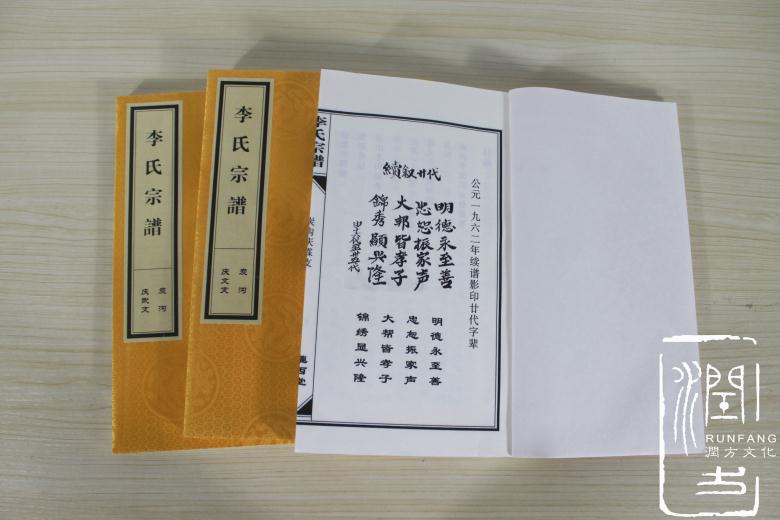 李氏宗譜
炭河
庆武支
李氏宗譜
炭河
庆文支
李氏宗譜
公元一九六二年续谱影印廿代字辈
續叙廿代
明德永至善
忠恕振家声
大邦皆孝子
錦秀顯兴隆
明德永至善
忠恕振家声
大帮皆孝子
锦绣显兴隆
RUNFANG
潤方文化